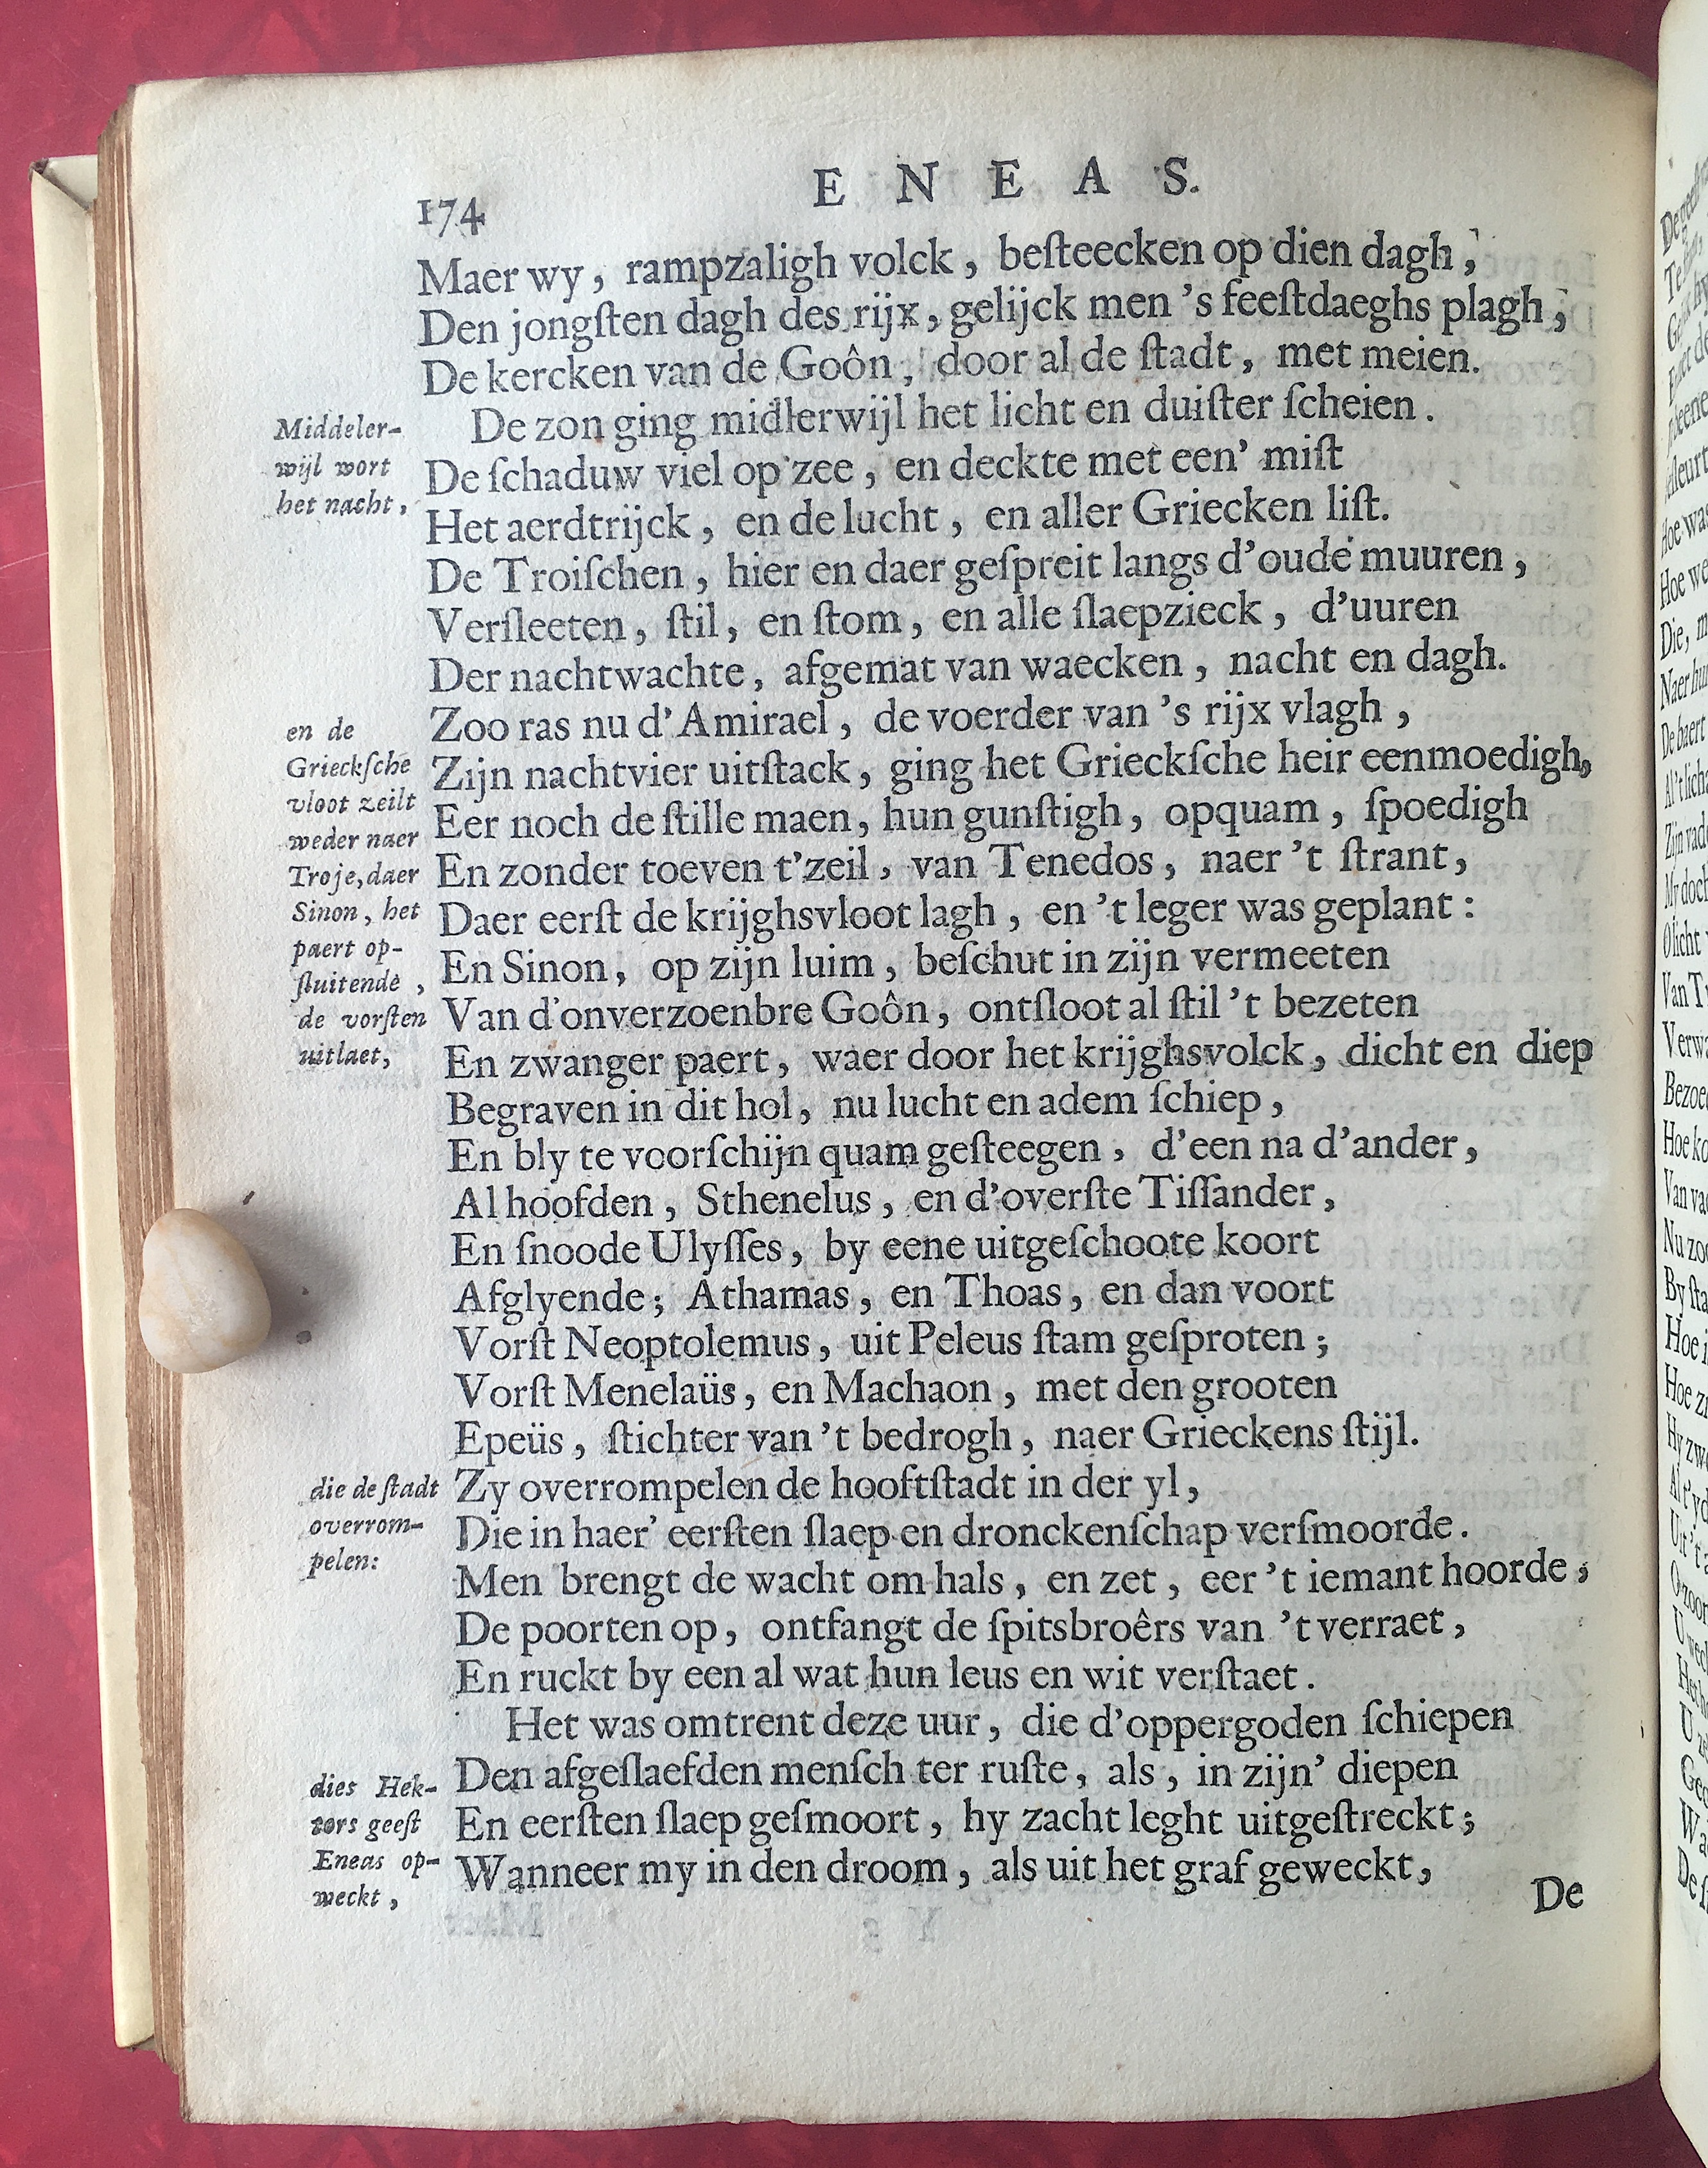 E N E A S.
174
Maer wy, rampzaligh volck, beſteecken op dien dagh,
Den jongſten dagh des rijx, gelijck men 's feeſtdaeghs plagh,
De kercken van de Goôn, door al de ſtadt, met meien.
De zon ging midlerwijl het licht en duiſter ſcheien.
De ſchaduw viel op zee, en deckte met een' miſt
Het aerdtrijck, en de lucht, en aller Griecken liſt.
De Troiſchen, hier en daer geſpreit langs d'oude muuren,
Verſleeten, ſtil, en ſtom, en alle ſlaepzieck, d'uuren
Der nachtwachte, afgemat van waecken, nacht en dagh.
Zoo ras nu d'Amirael, de voerder van 's rijx vlagh,
Zijn nachtvier uitſtack, ging het Griecksche heir eenmoedigh,
Eer noch de ſtille maen, hun gunſtigh, opquam, ſpoedigh
En zonder toeven t'zeil, van Tenedos, naer 't ſtrant,
Daer eerſt de krijghsvloot lagh, en 't leger was geplant:
En Sinon, op zijn luim, beſchut in zijn vermeeten
Van d'onverzoenbre Goôn, ontſloot al ſtil 't bezeten
En zwanger paert, waer door het krijghsvolck, dicht en diep
Begraven in dit hol, nu lucht en adem ſchiep,
En bly te voorſchijn quam geſteegen, d'een na d'ander,
Al hoofden, Sthenelus, en d'overſte Tiſſander,
En ſnoode Ulyſſes, by eene uitgeſchoote koort
Afglyende; Athamas, en Thoas, en dan voort
Vorſt Neoptolemus, uit Peleus ſtam geſproten;
Vorſt Menelaüs, en Machaon, met den grooten
Epeüs, ſtichter van 't bedrogh, naer Grieckens ſtijl.
Zy overrompelen de hooftſtadt in der yl,
Die in haer' eerſten ſlaep en dronckenſchap verſmoorde.
Men brengt de wacht om hals, en zet, eer 't iemant hoorde,
De poorten op, ontfangt de ſpitsbroêrs van 't verraet,
En ruckt by een al wat hun leus en wit verſtaet.
Het was omtrent deze uur, die d'oppergoden ſchiepen
Den afgeſlaefden menſch ter ruſte, als, in zijn' diepen
En eerſten ſlaep geſmoort, hy zacht leght uitgeſtreckt;
Wanneer my in den droom, als uit het graf geweckt,
De
Middeler-
wijl wort
het nacht,
en de
Grieckſche
vloot zeilt
weder naer
Troje, daer
Sinon, het
paert op-
ſluitende,
de vorſten
uitlaet,
die de ſtadt
overrom-
pelen:
dies Hek-
tors geeſt
Eneas op-
weckt,